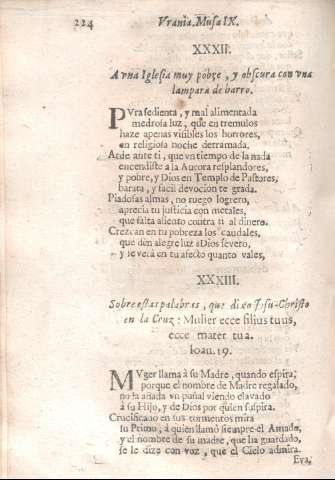 224 Vrania. Musa IX.
XXXII.
A vna Iglesia muy pobre, y obscura con vna
lampara de barro.
PVra sedienta, y mal alimentada
medrosa luz, que en tremulos
haze apenas visibles los horrores,
en religiosa noche derramada.
Arde ante ti, que vn tiempo de la nada
encendiste a la Aurora resplandores,
y pobre, y Dios en Templo de Pastores,
barata, y facil devocion te grada.
Piadosas almas, no ruego logrero,
aprecia tu justicia con metales,
que falta aliento contra ti al dinero.
Crezcan en tu pobreza los caudales,
que den alegre luz a Dios severo,
y se verà en tu afecto quanto vales,
XXXIII.
Sobre estas palabras, que dixo Jesu-Christo
en la Cruz: Mulier ecce filius tuus,
ecce mater tua.
Ioan. 19.
MVger llama à su Madre, quando espira,
porque el nombre de Madre regalado,
no la añada vn puñal viendo clavado
à su Hijo, y de Dios por quien suspira.
Crucificado en sus tormentos mira
su Primo, à quien llamò siempre el Amado,
y el nombre de su madre, que ha guardado,
se le dize con voz, que el Cielo admira.
Eva,